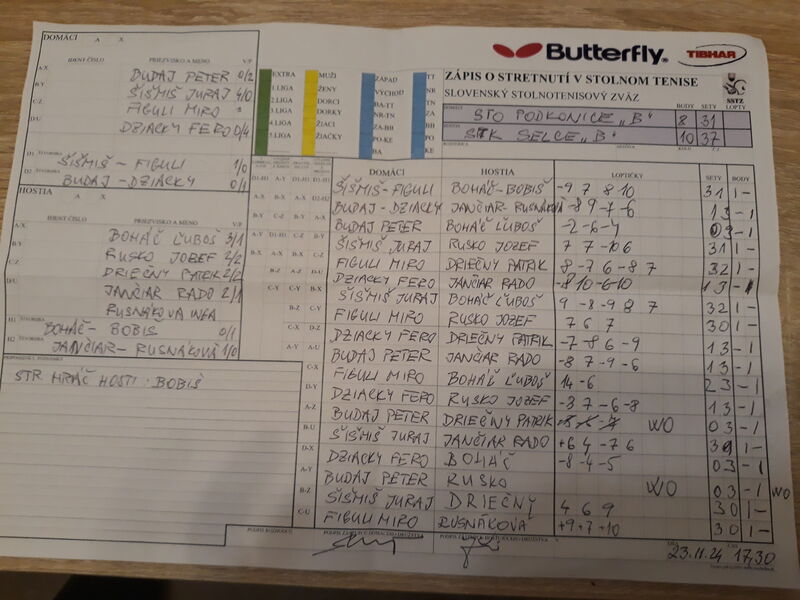 DOMÁCI A X
Butterfly
TIBHAR
IDENT. ČÍSLO PRIEZVISKO A MENO V/P
ZÁPIS O STRETNUTÍ V STOLNOM TENISE
SLOVENSKÝ STOLNOTENISOVÝ ZVÄZ
SSTZ
A/X BUDAJ PETER 0/2
B/Y ŠIŠMIŠ JURAJ 4/0
C/Z FIGULI MIRO
D/U DZIACKY FERO 0/4
D1 ŠIŠMIŠ - FIGULI 1/0
D2 BUDAJ - DZIACKY 0/1
EXTRA MUŽI ZÁPAD
1.LIGA ŽENY VÝCHOD
2.LIGA DORCI BA-TT
3.LIGA DORKY NR-TN
4.LIGA ŽIACI ZA-BB
5.LIGA ŽIAČKY PO-KE
BA KE
BODY SETY LOPTY
STO PODKONICE „B“ 8 31
STK SELCE „B“ 10 37
HOSTIA A X
IDENT. ČÍSLO PRIEZVISKO A MENO V/P
A/X BOHÁČ ĽUBOŠ 3/1
B/Y RUSKO JOZEF 2/2
C/Z DRIEČNY PATRIK 2/2
D/U JANČIAR RADO 2/1
RUSNÁKOVÁ INFA
H1 BOHÁČ - BOBIŠ 0/1
H2 JANČIAR - RUSNÁKOVÁ 1/0
STR HRÁČ HOSTI : BOBIŠ
DOMÁCI HOSTIA LOPTIČKY SETY BODY
ŠIŠMIŠ - FIGULI BOHÁČ - BOBIŠ -9 7 8 10 3 1 1 -
BUDAJ - DZIACKY JANČIAR - RUSNÁKOVÁ -8 9 -7 -6 1 3 - 1
BUDAJ PETER BOHÁČ ĽUBOŠ -2 -6 -4 0 3 - 1
ŠIŠMIŠ JURAJ RUSKO JOZEF 7 7 -10 6 3 1 1 -
FIGULI MIRO DRIEČNY PATRIK 8 -7 6 -8 7 3 2 1 -
DZIACKY FERO JANČIAR RADO -8 10 -6 -10 1 3 - 1
ŠIŠMIŠ JURAJ BOHÁČ ĽUBOŠ 9 -8 -9 8 7 3 2 1 -
FIGULI MIRO RUSKO JOZEF 7 6 7 3 0 1 -
DZIACKY FERO DRIEČNY PATRIK -7 8 -6 -9 1 3 - 1
BUDAJ PETER JANČIAR RADO -8 7 -9 -6 1 3 - 1
FIGULI MIRO BOHÁČ ĽUBOŠ 14 -6 2 3 - 1
DZIACKY FERO RUSKO JOZEF -8 7 -6 -8 1 3 - 1
BUDAJ PETER DRIEČNY PATRIK WO 0 3 - 1
ŠIŠMIŠ JURAJ JANČIAR RADO +6 4 -7 6 3 1 -
DZIACKY FERO BOHÁČ -8 -4 -5 0 3 - 1
BUDAJ PETER RUSKO WO 0 3 - 1 WO
ŠIŠMIŠ JURAJ DRIEČNY 4 6 9 3 0 1 -
FIGULI MIRO RUSNÁKOVÁ +9 +7 +10 3 0 1 -
23.11.24 17,30